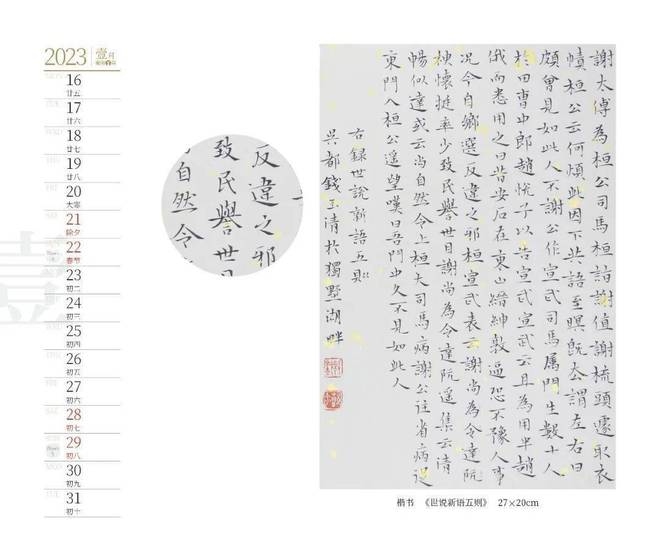 2023 壹月
16 廿五
17 廿六
18 廿七
19 廿八
20 大寒
21 除夕
22 春节
23 初二
24 初三
25 初四
26 初五
27 初六
28 初七
29 初八
30 初九
31 初十
壹
反違之邪
致民譽世目
自然令
謝太傅為桓公司馬桓詣謝值謝梳頭遽取衣
幘桓公云何煩此因下共語至暝既去謂左右曰
頗曾見如此人不謝公作宣武司馬属門生數十人
於田曹中郎趙悦子以告宣武宣武云且為用半趙
俄而悉用之曰昔安石在東山縉紳敦逼恐不豫人事
况今自鄉選反違之邪桓宣武表云謝尚為令達阮
神懷挺率少致民譽世目謝尚為令達阮遥集云清
暢似達或云尚自然令上桓大司馬病謝公往省病從
東門入桓公遥望嘆曰吾門中久不見如此人
右録世說新語五則
吳都錢玉清於獨墅湖畔
楷书 《世说新语五则》 27×20cm